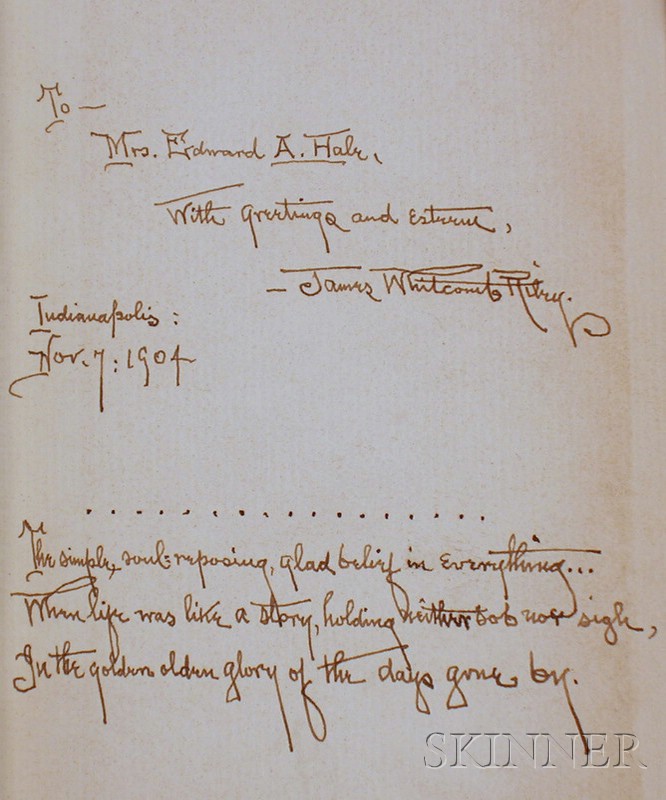 To —
Mrs. Edward A. Hale,
With greetings and esteem,
— James Whitcomb Riley.
Indianapolis:
Nov. 7: 1904
. . . . . . . . . . . . . . . . .
The simple, soul-reposing, glad belief in everything...
When life was like a story, holding neither sob nor sigh,
In the golden olden glory of the days gone by.
SKINNER